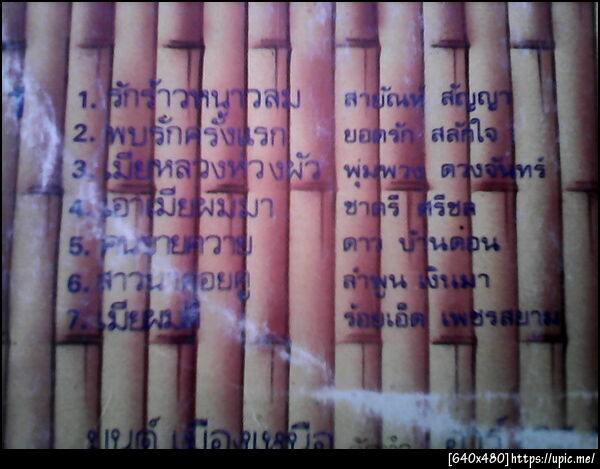 1. รักร้าวหนาวลม สายัณห์ สัญญา
2. พบรักครั้งแรก ยอดรัก สลักใจ
3. เมียหลวงหวงผัว พุ่มพวง ดวงจันทร์
4. เอาเมียผมมา ชาตรี ศรีชล
5. คนขายควาย ดาว บ้านดอน
6. สาวนาคอยคู่ ลำพูน เงินมา
7. เมียผมดี ร้อยเอ็ด เพชรสยาม
มนต์ เมืองเหนือ
[640x480]https://upic.me/